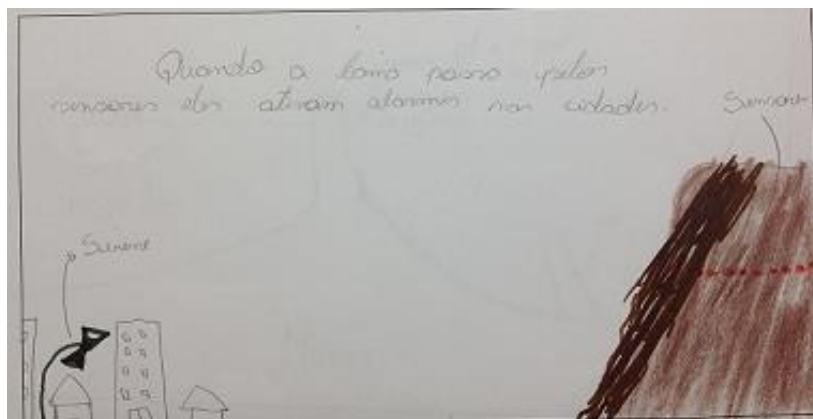 Quando a lama passa pelos
sensores eles ativam alarmes nas cidades.
Sensores
Sirene